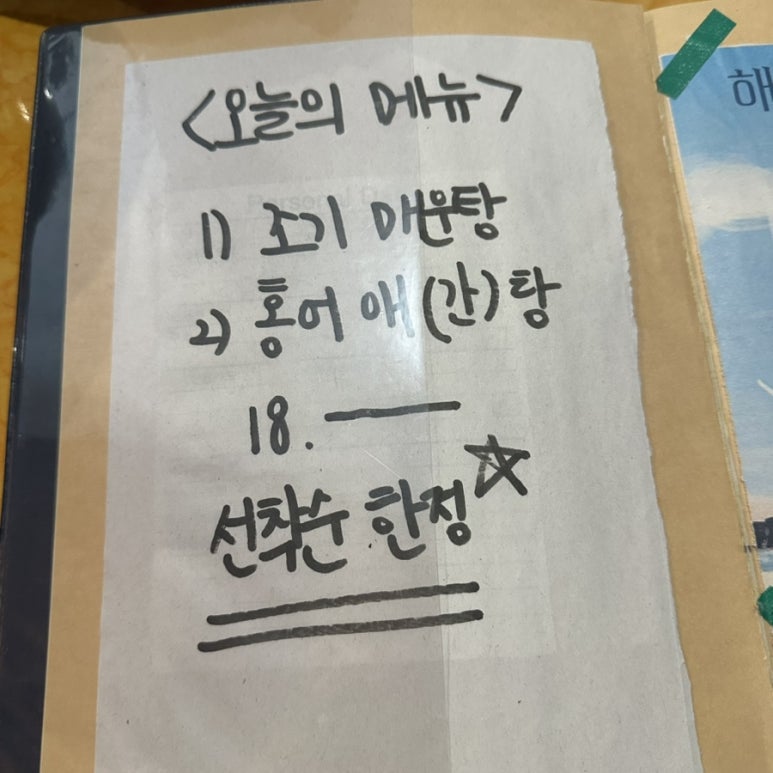 <오늘의 메뉴>
1) 조기 매운탕
2) 홍어 애(간)탕
18. ―
선착순 한정☆
해